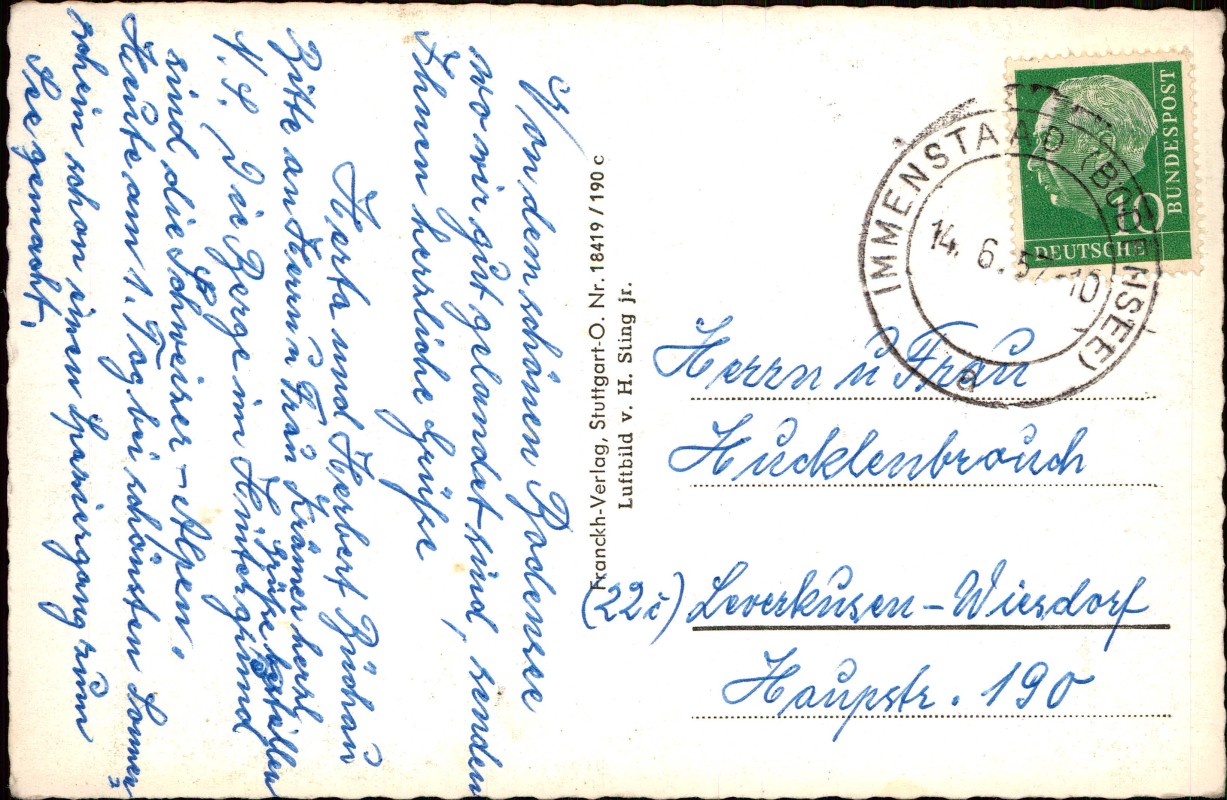 Von den schönen Bodensee
wo wir gut gelandet sind, senden
Ihnen herrliche Grüße
Herta und Herbert Büchau
Bitte an Herrn u Frau Krämer herl
Grüße bestellen
N.S. Die Berge im Hintergrund
sind die Schweizer-Alpen.
Heute am 1. Tag bei schönsten Sonnen-
schein schon einen Spaziergang zum
See gemacht.
Franckh-Verlag, Stuttgart-O. Nr. 18419/190 c
Luftbild v. H. Sting jr.
DEUTSCHE BUNDESPOST
10
IMMENSTAAD (BODENSEE)
14. 6. 57-10
a
Herrn u Frau
Hucklenbrouch
(22c) Leverkusen-Wiesdorf
Haupstr. 190